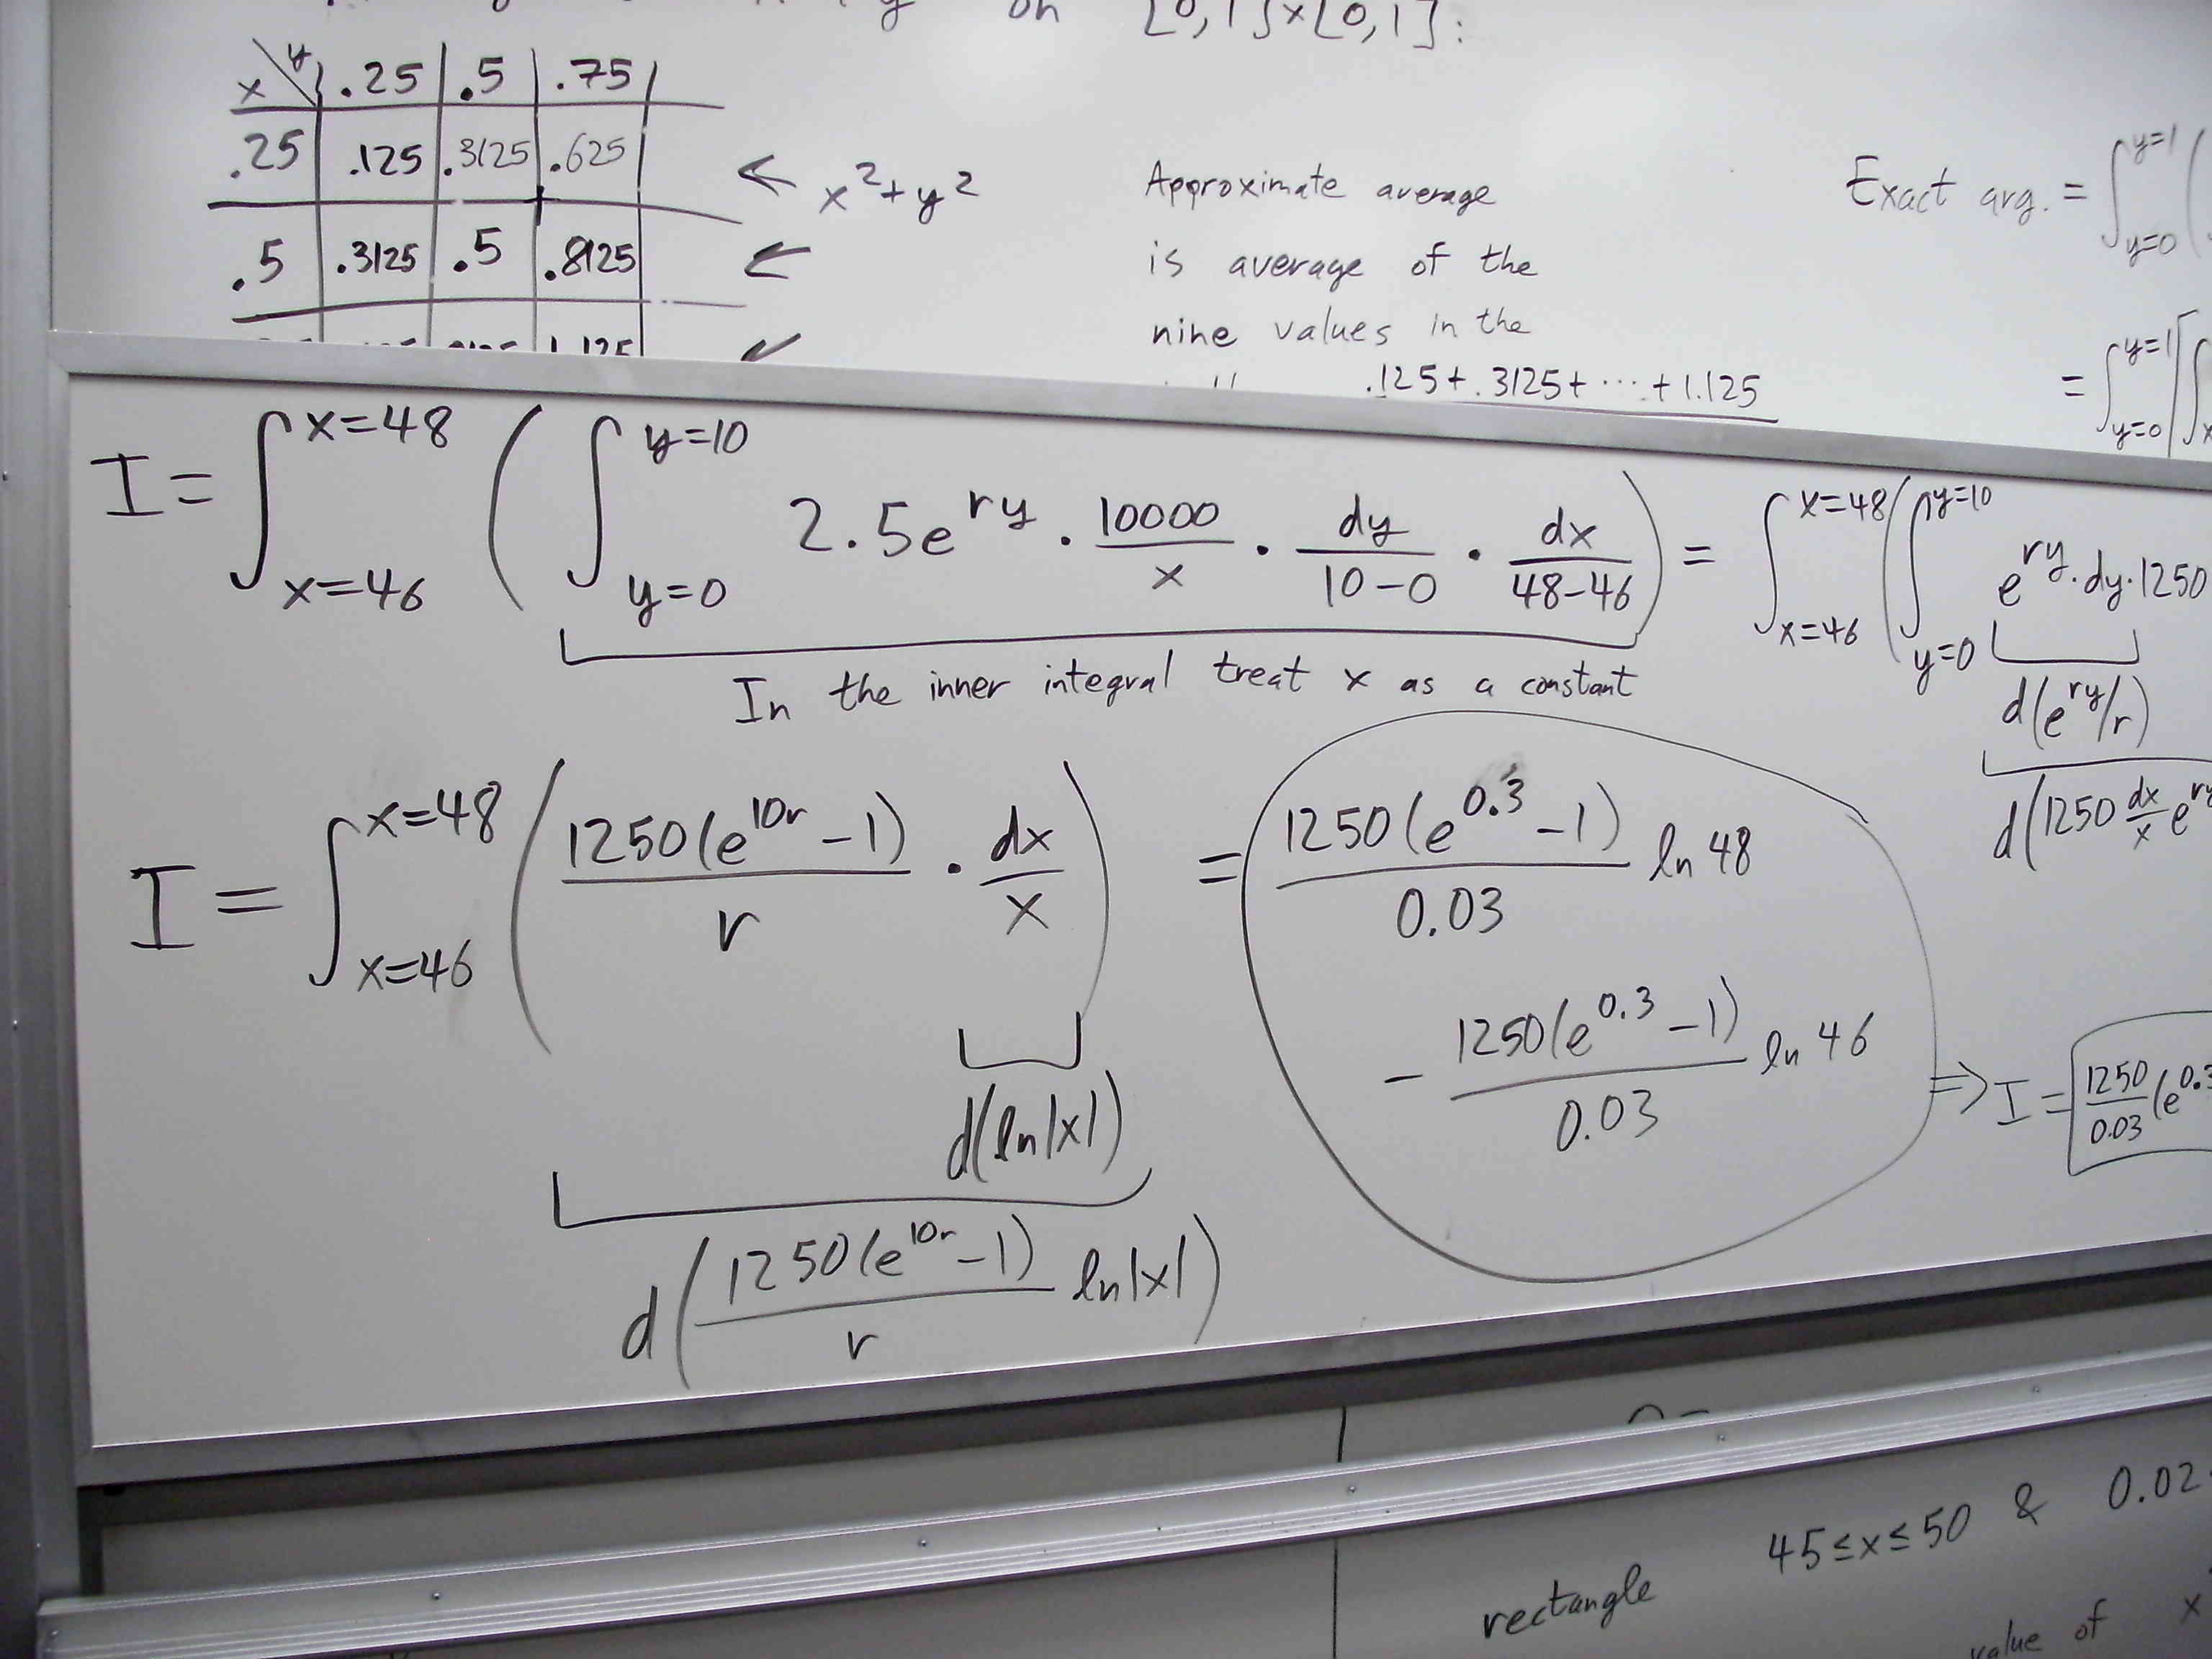 y on [0,1]×[0,1]:
x y .25 .5 .75
.25 .125 .3125 .625 ← x²+y²
.5 .3125 .5 .8125 ←
1.125
Approximate average
is average of the
nine values in the
.125+.3125+⋯+1.125
Exact avg. = ∫_{y=0}^{y=1} (
= ∫_{y=0}^{y=1} [∫
I = ∫_{x=46}^{x=48} ( ∫_{y=0}^{y=10} 2.5e^{ry} · 10000/x · dy/(10−0) · dx/(48−46) ) = ∫_{x=46}^{x=48} ( ∫_{y=0}^{y=10} e^{ry}·dy·1250
In the inner integral treat x as a constant
d(e^{ry}/r)
d(1250 dx/x e^{ry}
I = ∫_{x=46}^{x=48} ( 1250(e^{10r}−1)/r · dx/x ) = 1250(e^{0.3}−1)/0.03 ln 48
− 1250(e^{0.3}−1)/0.03 ln 46
⇒ I = 1250/0.03 (e^{0.3}
d(ln|x|)
d( 1250(e^{10r}−1)/r ln|x| )
rectangle 45≤x≤50 & 0.02
value of x